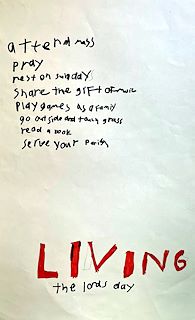 attend mass
pray
rest on sunday
share the gift of music
play games as a family
go outside and touch grass
read a book
serve your Parish
LIVING
the lords day